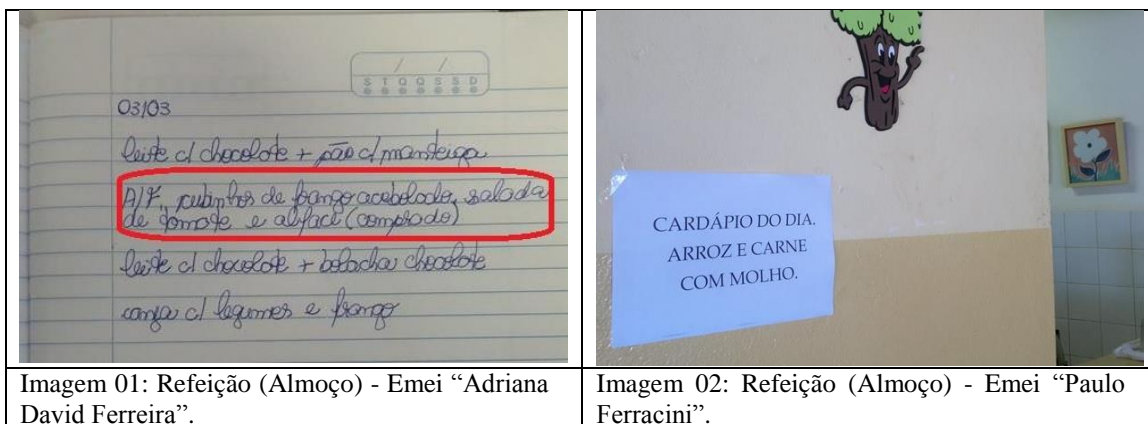 S T Q Q S S D
03/03
leite c/ chocolate + pão c/ manteiga
A/F, cubinhos de frango acebolado, salada
de tomate e alface (comprado)
leite c/ chocolate + bolacha chocolate
canja c/ legumes e frango
CARDÁPIO DO DIA.
ARROZ E CARNE
COM MOLHO.
Imagem 01: Refeição (Almoço) - Emei “Adriana
David Ferreira”.
Imagem 02: Refeição (Almoço) - Emei “Paulo
Ferracini”.